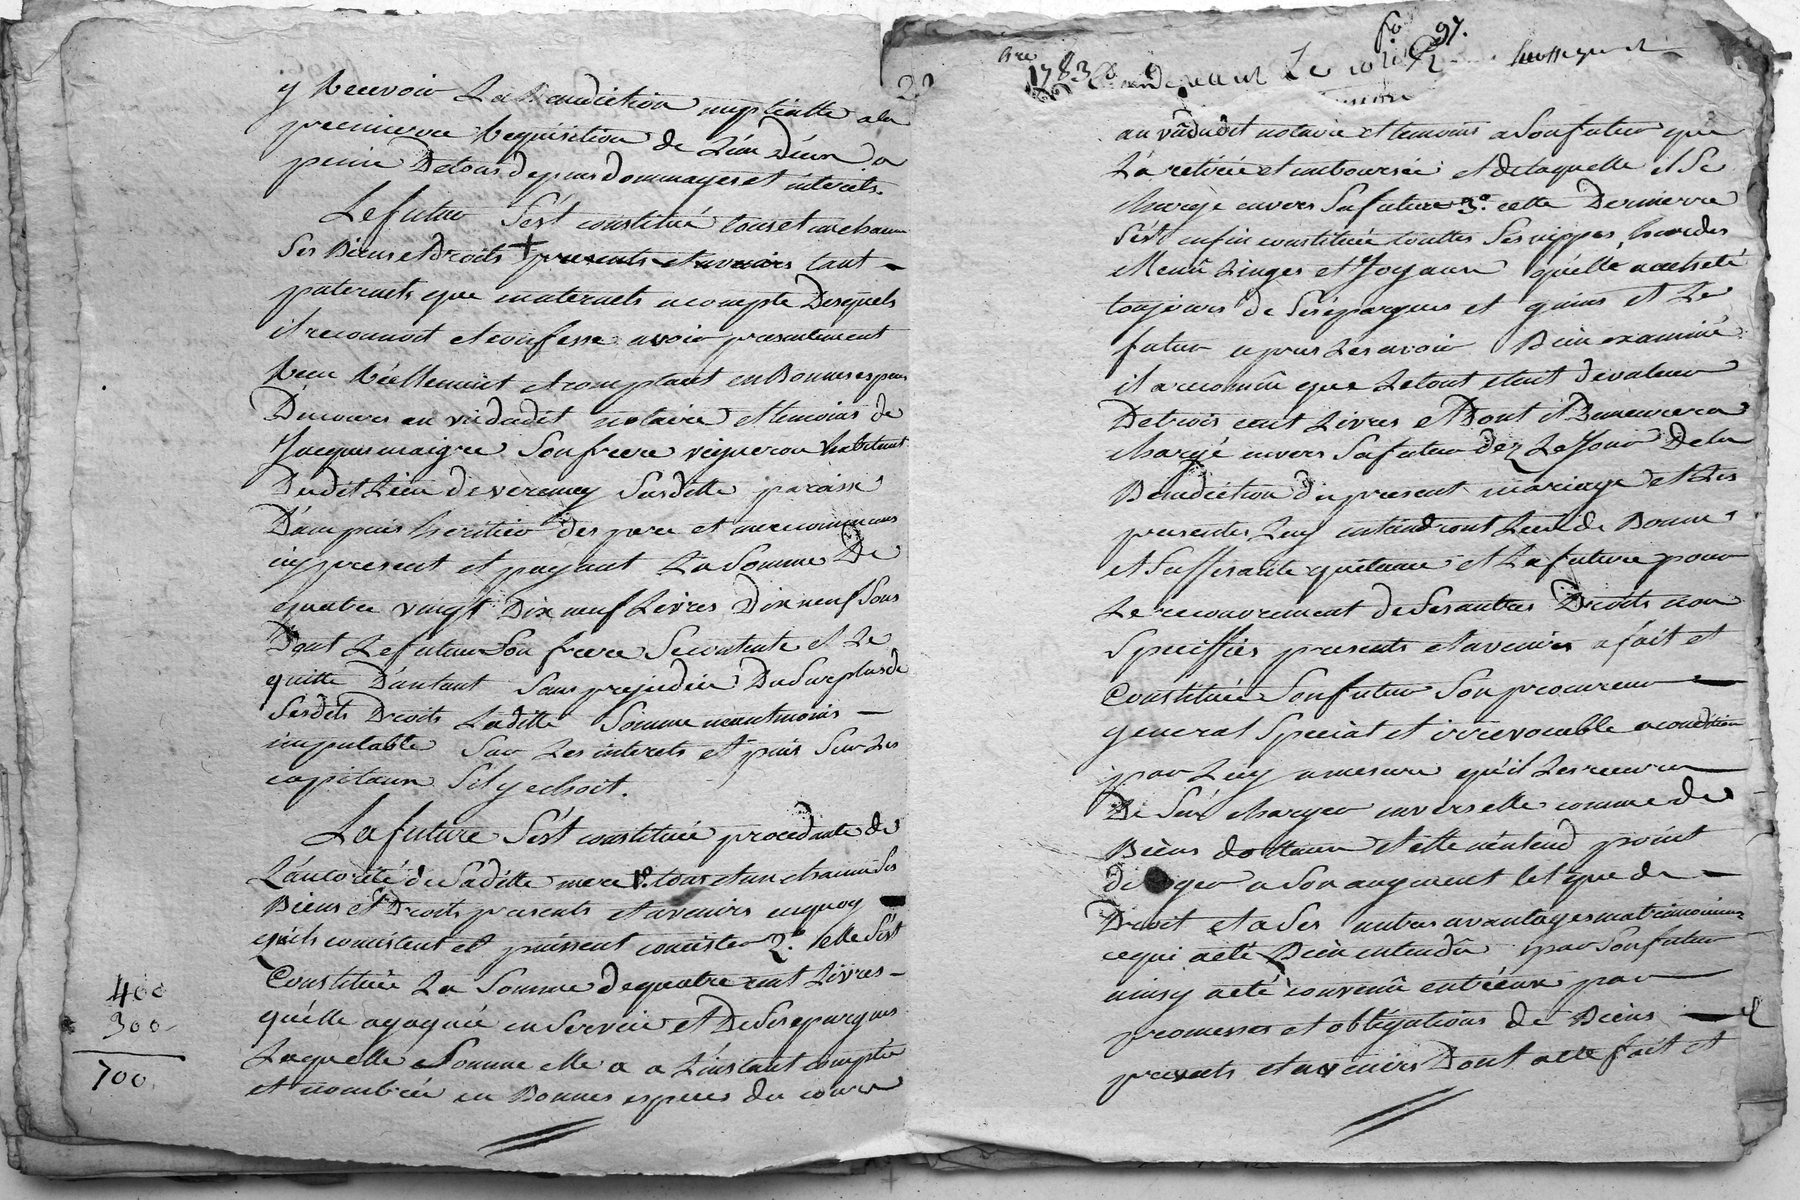 y Recevoir La Benediction nuptialle a la
premierre Requisition de L'un d'eux a
peine De tous depens dommages et interets.
Le futur s'est constitué tous et un chacun
ses Biens et Droits + presents et avenirs tant
paternels que maternels a compte Desquels
il reconnoit et confesse avoir presentement
Recu Réellement et comptant en Bonnes especes
Du cours au vû dudit notaire et temoins de
Jacques maigre son frere vigneron habitant
Dudit Lieu de verenay susditte paroisse
D'ampuis heritier des pere et mere communs
icy present et payant La Somme De
quatre vingt Dix neuf Livres Dix neuf Sous
Dont Le futur Son frere Se contente et Le
quitte D'autant Sans prejudice Du Surplus de
Sesdits Droits Laditte Somme neantmoins
imputable Sur Les interets et puis Sur Les
capitaux S'il y echoit.
La future S'est constituée procedante de
L'autorité de Saditte mere 1º. tous et un chacun Ses
Biens et Droits presents et avenirs en quoy
qu'ils consistent et puissent consister 2º. elle S'est
Constituée La Somme de quatre cent Livres
qu'elle a gagnée en Service et De Ses epargnes
Laquelle Somme elle a a L'instant comptée
et nombrée en Bonnes especes du cours
400
300
700
22
fo 97.
1783
au vû dudit notaire et temoins a Son futur qui
L'a retirée et emboursée et de laquelle il Se
charge envers Sa future 3º. cette Dernierre
S'est enfin constituée touttes Ses nippes, hardes
Menu Linges et Joyaux qu'elle a acheté
toujours de Ses epargnes et gains et Le
futur apres Les avoir Bien examiné
il a reconnû que Le tout etoit de valeur
De trois cent Livres et Dont il Demeurera
chargé envers Sa future dez Le Jour De la
Benediction du present mariage et Les
presentes Luy en tiendront Lieu de Bonne
et Suffisante quittance et La future pour
Le recouvrement de Ses autres Droits non
Speciffiés presents et avenirs a fait et
Constitué Son futur Son procureur
general Special et irrevocable a condition
par Luy a mesure qu'il Les recevra
De S'en charger envers elle comme de
Biens dottaux et elle n'entend point
deroger a Son augment tel que de
Droit et a Ses autres avantages matrimoniaux
ce qui a eté Bien entendû par Son futur
ainsy a eté convenû entr'eux par
promesses et obligations de Biens
presents et avenirs Dont acte fait et